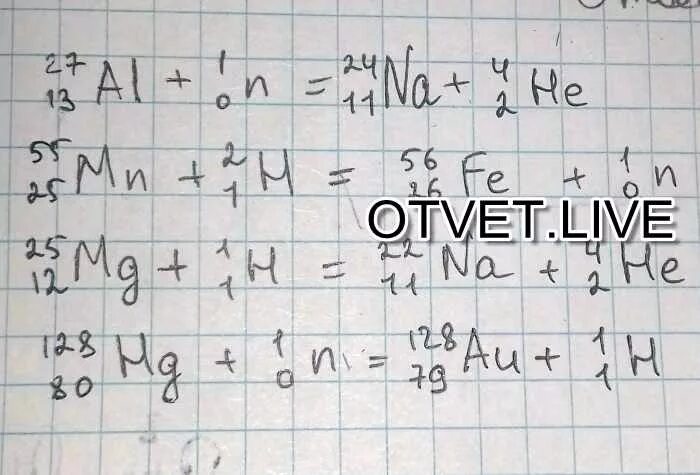 ²⁷₁₃Al + ¹₀n = ²⁴₁₁Na + ⁴₂He
⁵⁵₂₅Mn + ²₁H = ⁵⁶₂₆Fe + ¹₀n
OTVET.LIVE
²⁵₁₂Mg + ¹₁H = ²²₁₁Na + ⁴₂He
¹²⁸₈₀Hg + ¹₀n = ¹²⁸₇₉Au + ¹₁H